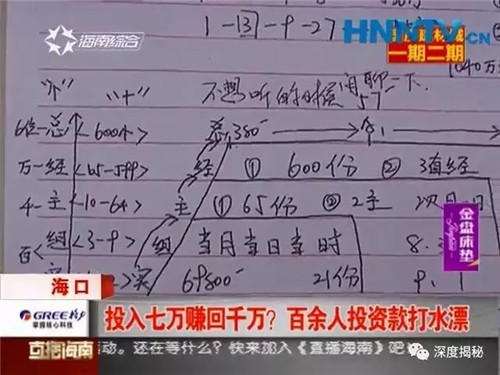 1-13-9-27
海南综合
HNNTV.CN
一期二期
1040万
不想听的时候闲聊一下.
6位-总 <600个>
总 380
万-经 <65-599>
经 ① 600份 ② 3直经
4-主 <10-64>
主 ① 65份 ② 2主
百 组 <3-9> 组 当月当日当时
8.
买 69800 21份 9.1
金盘床垫
海口
GREE格力
掌握核心科技
投入七万赚回千万？百余人投资款打水漂
直播海南
活动。还在等什么？快来加入《直播海南》吧
深度揭秘